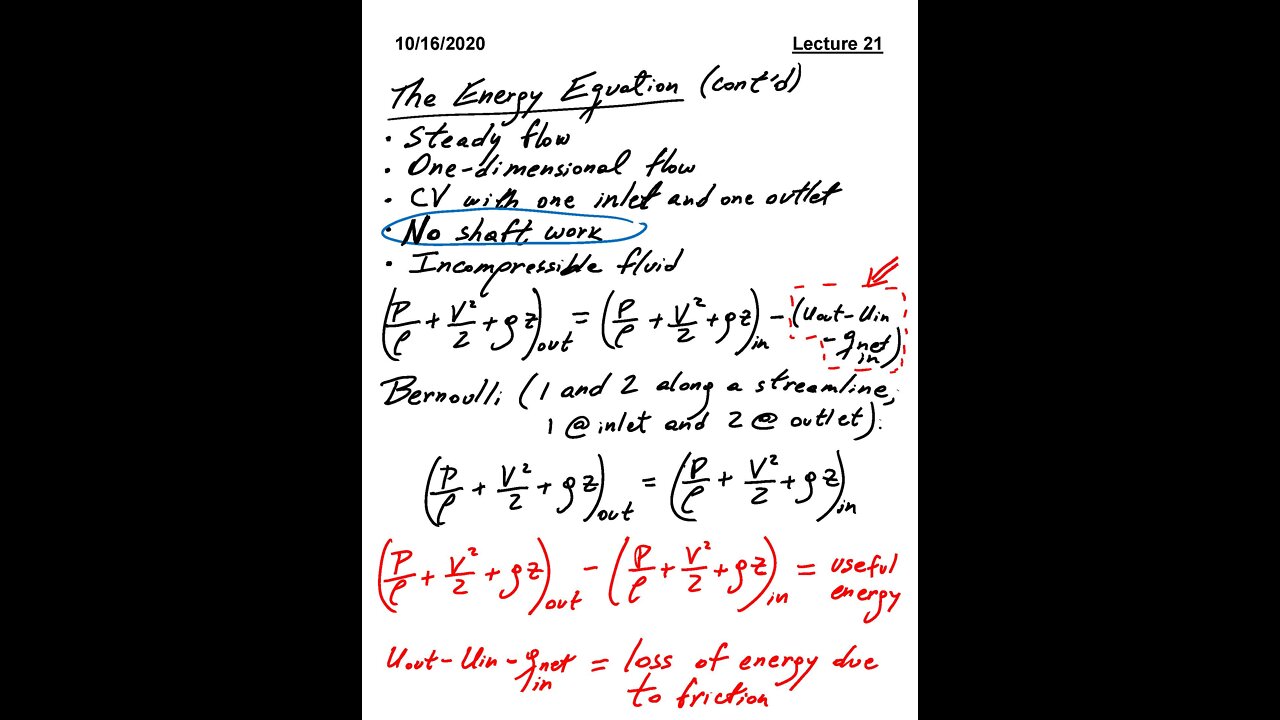 10/16/2020 Lecture 21
The Energy Equation (cont'd)
• Steady flow
• One-dimensional flow
• CV with one inlet and one outlet
• No shaft work
• Incompressible fluid
(P/ρ + V²/2 + gz)out = (P/ρ + V²/2 + gz)in − (uout − uin − qnet in)
Bernoulli (1 and 2 along a streamline,
1 @ inlet and 2 @ outlet):
(P/ρ + V²/2 + gz)out = (P/ρ + V²/2 + gz)in
(P/ρ + V²/2 + gz)out − (P/ρ + V²/2 + gz)in = useful
energy
uout − uin − qnet in = loss of energy due
to friction